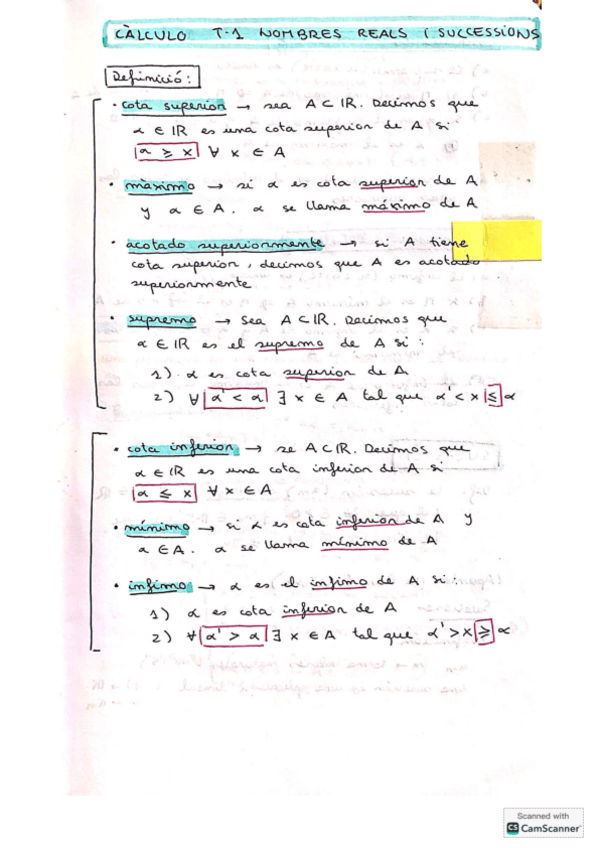 CÀLCULO T-1 NOMBRES REALS I SUCCESSIONS
Definició:
· cota superior → sea A ⊂ IR. Decimos que
α ∈ IR es una cota superior de A si
α ≥ x ∀ x ∈ A
· màximo → si α es cota superior de A
y α ∈ A. α se llama máximo de A
· acotado superiormente → si A tiene
cota superior, decimos que A es acotado
superiormente
· supremo → Sea A ⊂ IR. Decimos que
α ∈ IR es el supremo de A si:
1) α es cota superior de A
2) ∀ α' < α ∃ x ∈ A tal que α' < x ≤ α
· cota inferior → se A ⊂ IR. Decimos que
α ∈ IR es una cota inferior de A si
α ≤ x ∀ x ∈ A
· mínimo → si α es cota inferior de A y
α ∈ A. α se llama mínimo de A
· ínfimo → α es el ínfimo de A si:
1) α es cota inferior de A
2) ∀ α' > α ∃ x ∈ A tal que α' > x ≥ α
Scanned with
CS CamScanner